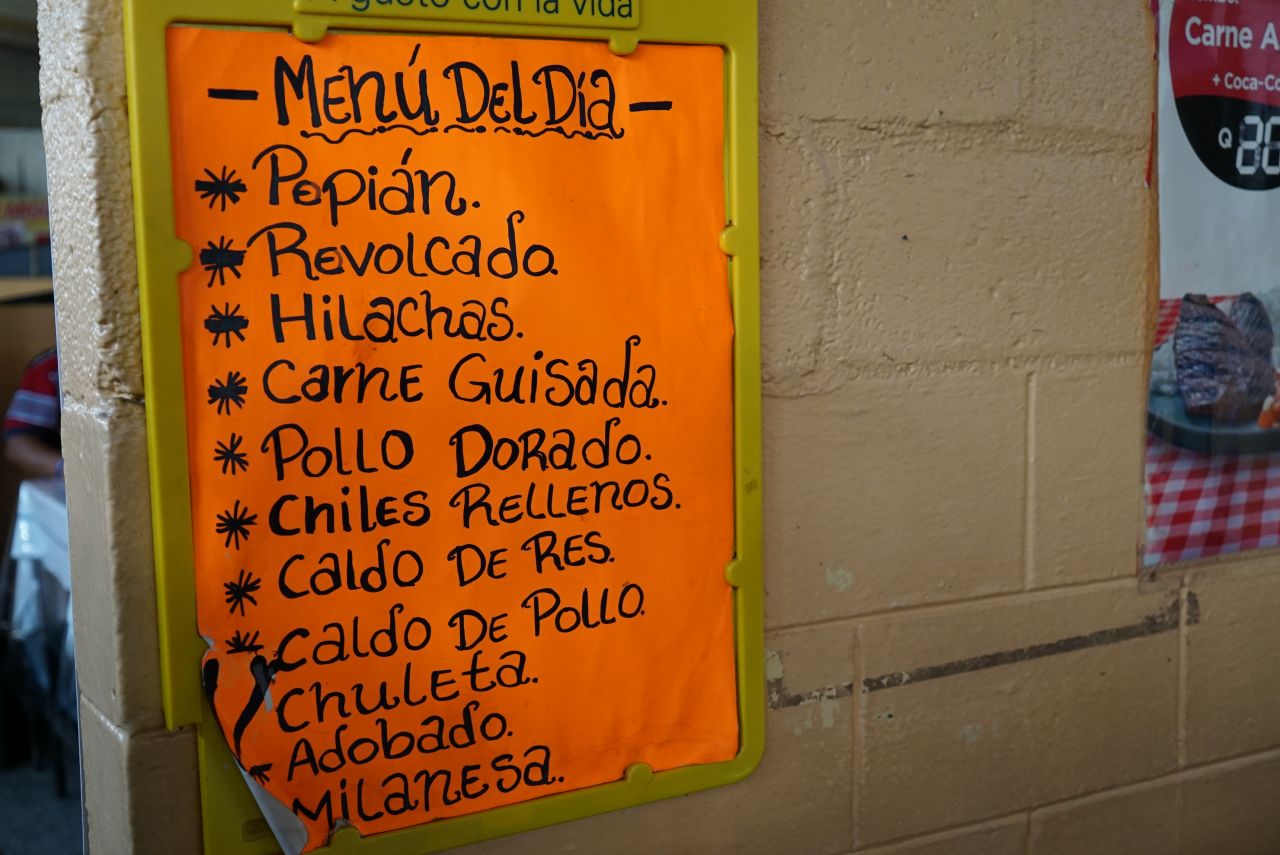 gusto con la vida
- Menú Del Día -
* Pepián.
* Revolcado.
* Hilachas.
* Carne Guisada.
* Pollo Dorado.
* Chiles Rellenos.
* Caldo De Res.
* Caldo De Pollo.
Chuleta.
Adobado.
Milanesa.
Carne A
+ Coca-Co
Q